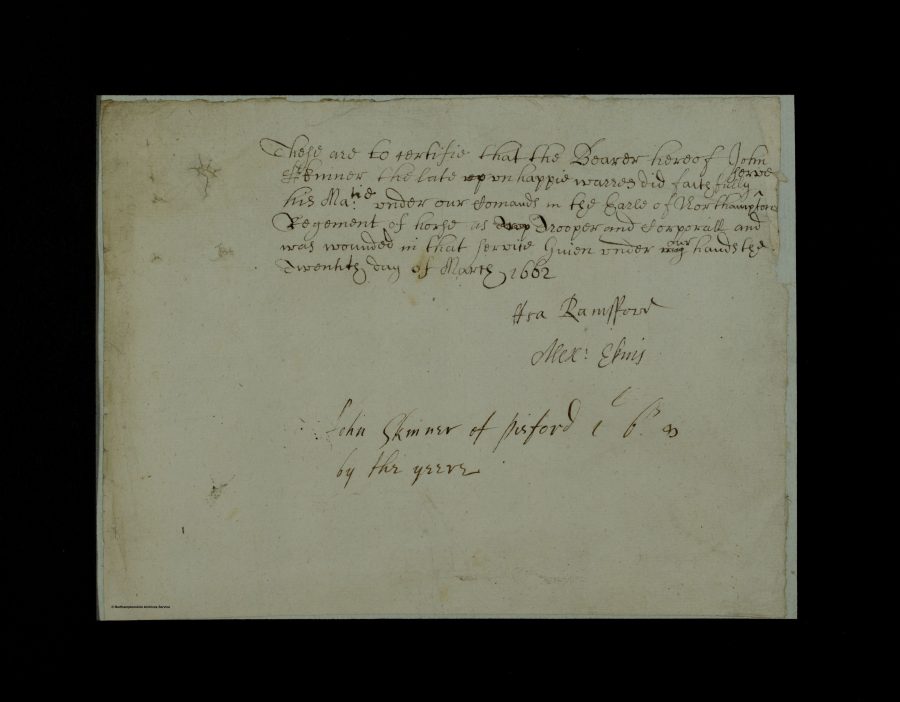 These are to certifie that the Bearer hereof John
Skinner the late up vnhappie warres did faithfully serve
his Ma:tie vnder our Comands in the Earle of Northampton
Regement of horse as Trooper and Corporall and
was wounded in that service Given vnder my our hands the
Twentith day of March 1662
Ra Rainsford
Alex: Ekins
John Skinner of Pisford
by the yeere
© Northamptonshire Archives Service